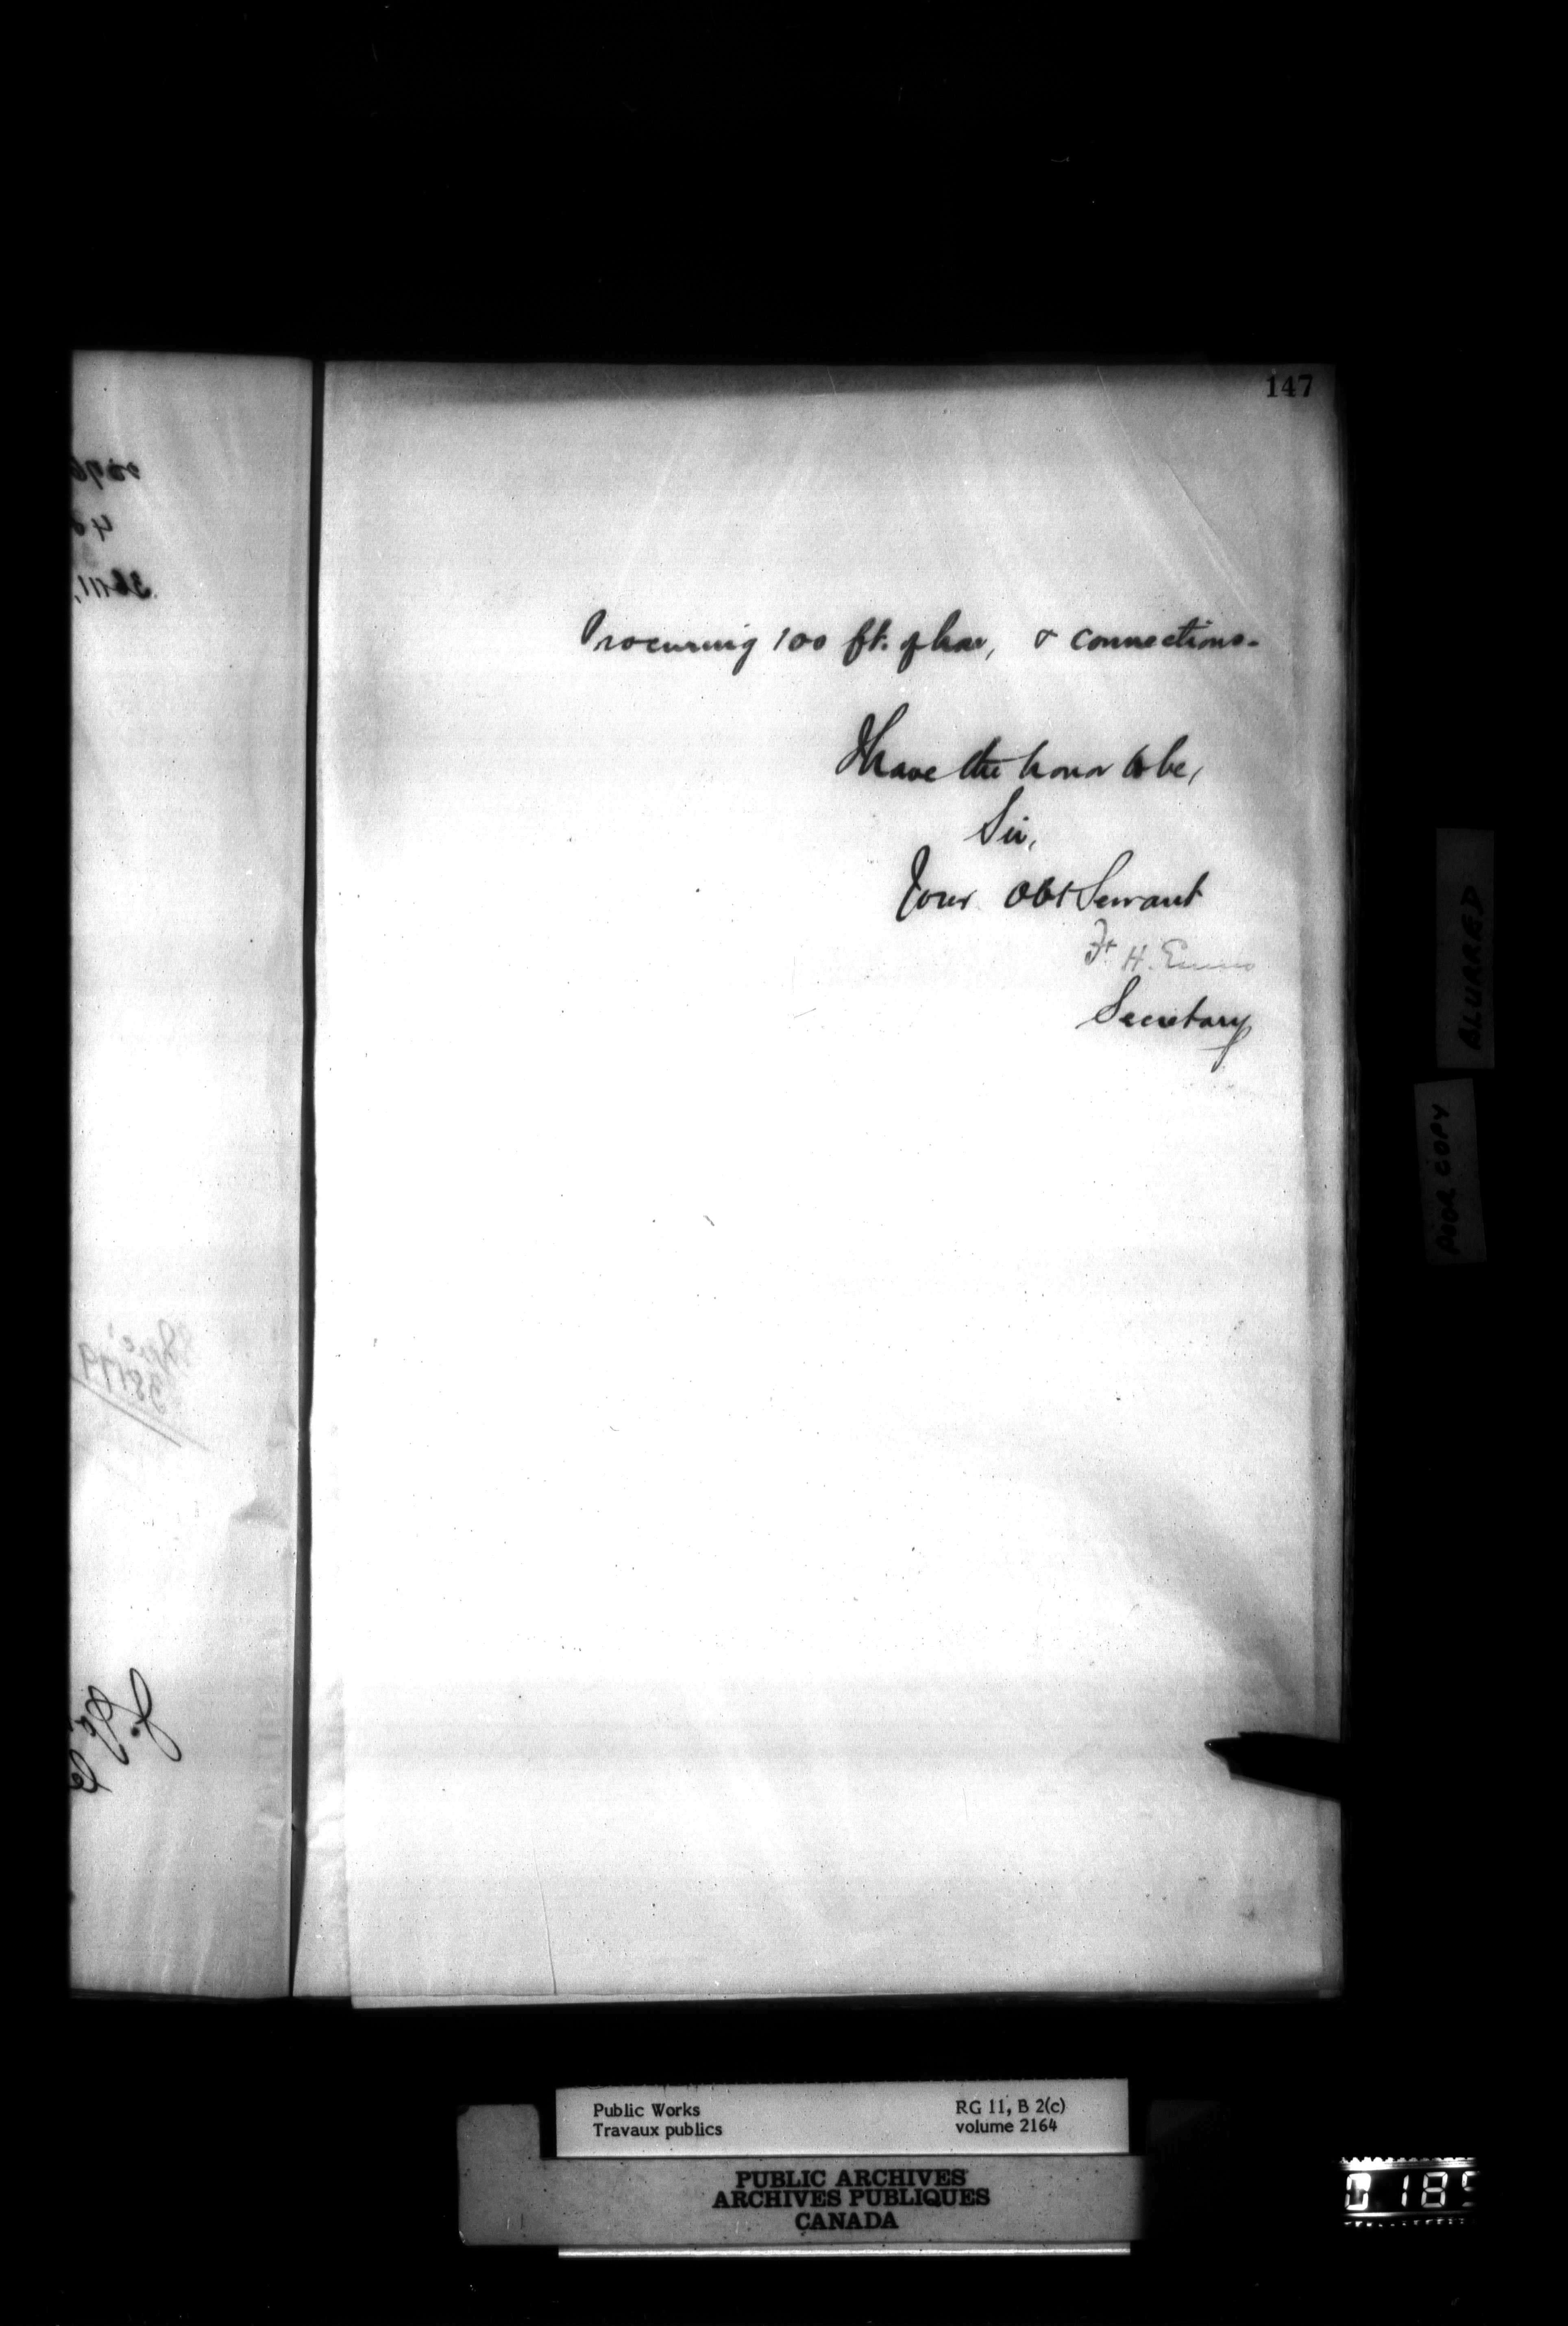 147
Procuring 100 ft. of hose, & connections.
I have the honor to be,
Sir,
Your Obt Servant
F. H. Ennis
Secretary
BLURRED
POOR COPY
Public Works
Travaux publics
RG 11, B 2(c)
volume 2164
PUBLIC ARCHIVES
ARCHIVES PUBLIQUES
CANADA